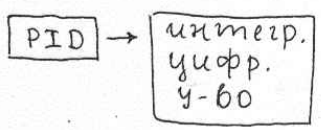 PID
интегр.
цифр.
у-во